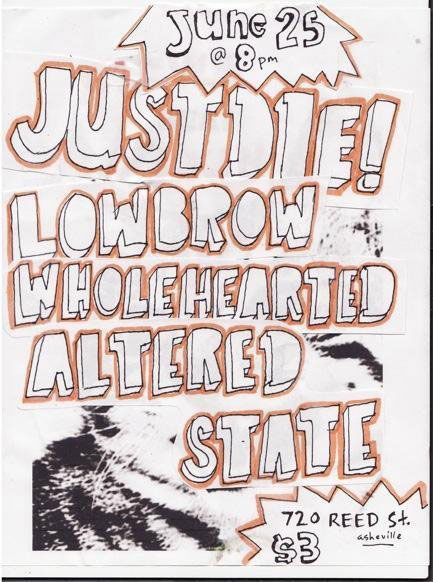 June 25
@ 8pm
JUST DIE!
LOWBROW
WHOLEHEARTED
ALTERED
STATE
720 REED St.
asheville
$3